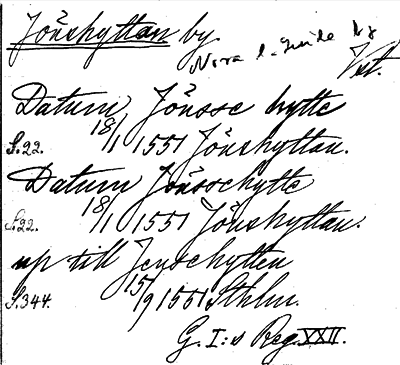 Jönshyttan by.
Nora l. Guide bg
Vst.
Datum Jönsse hytte
18/1 1551 Jönshyttan.
S.22.
Datum Jönssehytte
18/1 1551 Jönshyttan.
S.22.
up till Jenschytten
15/9 1551 Sthlm.
S.344.
G. I:s Reg. XXII.